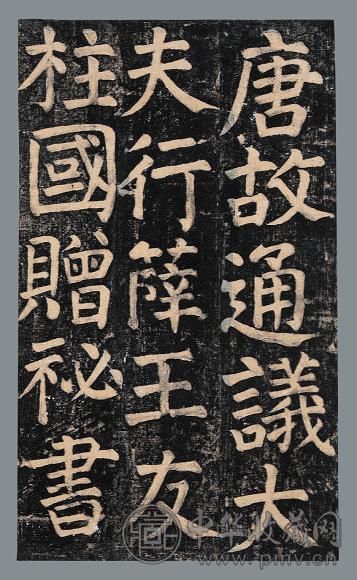 唐故通議大
夫行薛王友
柱國贈祕書
中华收藏网
www.pmv.cn